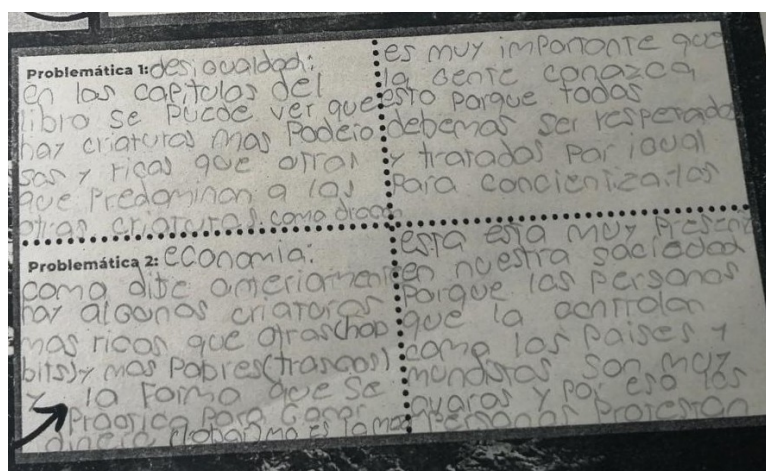 Problemática 1: desigualdad:
en los capítulos del
libro se puede ver que
hay criaturas mas podero
sas y ricas que otras
que predominan a las
otras criaturas. como
es muy importante que
la gente conozca
esto porque todos
debemos ser respetado
y tratados por igual
para concientizarlos
Problemática 2: economia:
como dije anteriormente
hay algunas criaturas
mas ricas que otras(hob
bits)y mas pobres(trasgos)
y la forma que se
practica para ganar
dinero
esta esta muy present
en nuestra sociedad
porque las personas
que la controlan
como los paises y
mundistas son muy
avaros y por eso las
personas protestan